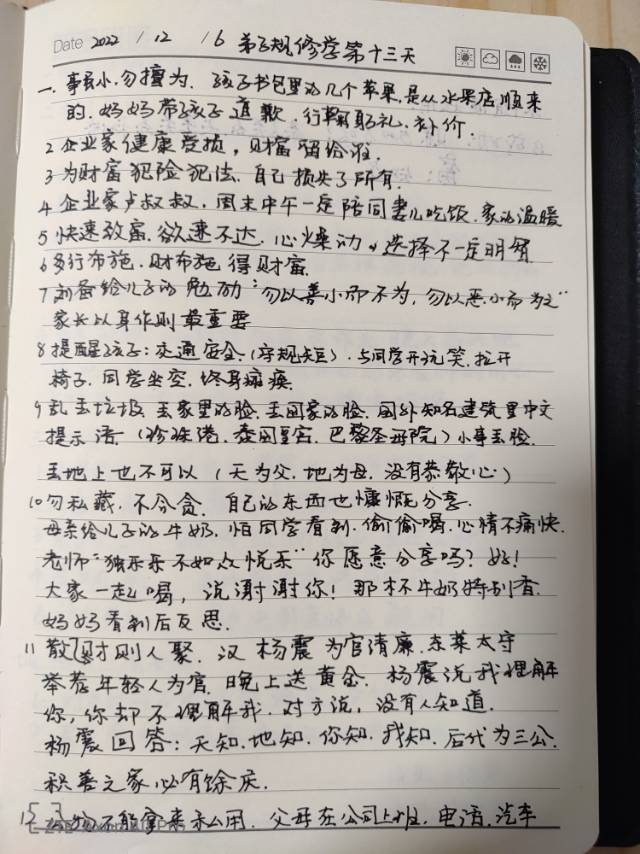 Date 2022 / 12 / 6 弟子规修学第十三天
一、事虽小,勿擅为. 孩子书包里的几个苹果,是从水果店顺来
的.妈妈带孩子道歉.行鞠躬礼.补价.
2 企业家健康受损,财富留给谁.
3 为财富犯险犯法.自己损失了所有.
4 企业家卢叔叔,周末中午一定陪同妻儿吃饭.家的温暖
5 快速致富.欲速不达.心燥动,选择不一定明智
6 多行布施.财布施得财富.
7 刘备给儿子的勉励:"勿以善小而不为,勿以恶小而为之"
家长以身作则最重要
8 提醒孩子:交通安全(守规矩).与同学开玩笑.拉开
椅子.同学坐空.终身瘫痪.
9 乱丢垃圾.丢家里的脸.丢国家的脸.国外知名建筑里中文
提示语.(珍珠港.泰国皇宫.巴黎圣母院)小事丢脸.
丢地上也不可以(天为父.地为母.没有恭敬心)
10 勿私藏.不贪.自己的东西也慷慨分享.
母亲给儿子的牛奶.怕同学看到.偷偷喝.心情不痛快.
老师"独乐乐不如众悦乐"你愿意分享吗?好!
大家一起喝,说谢谢你!那杯牛奶特别香.
妈妈看到后反思.
11 散财则人聚.汉杨震为官清廉.东莱太守
举荐年轻人为官.晚上送黄金.杨震说我理解
你,你却不理解我.对方说,没有人知道.
杨震回答:天知.地知.你知.我知.后代为三公.
积善之家必有馀庆.
12 物不能拿来私用.父母在公司上班.电话.汽车